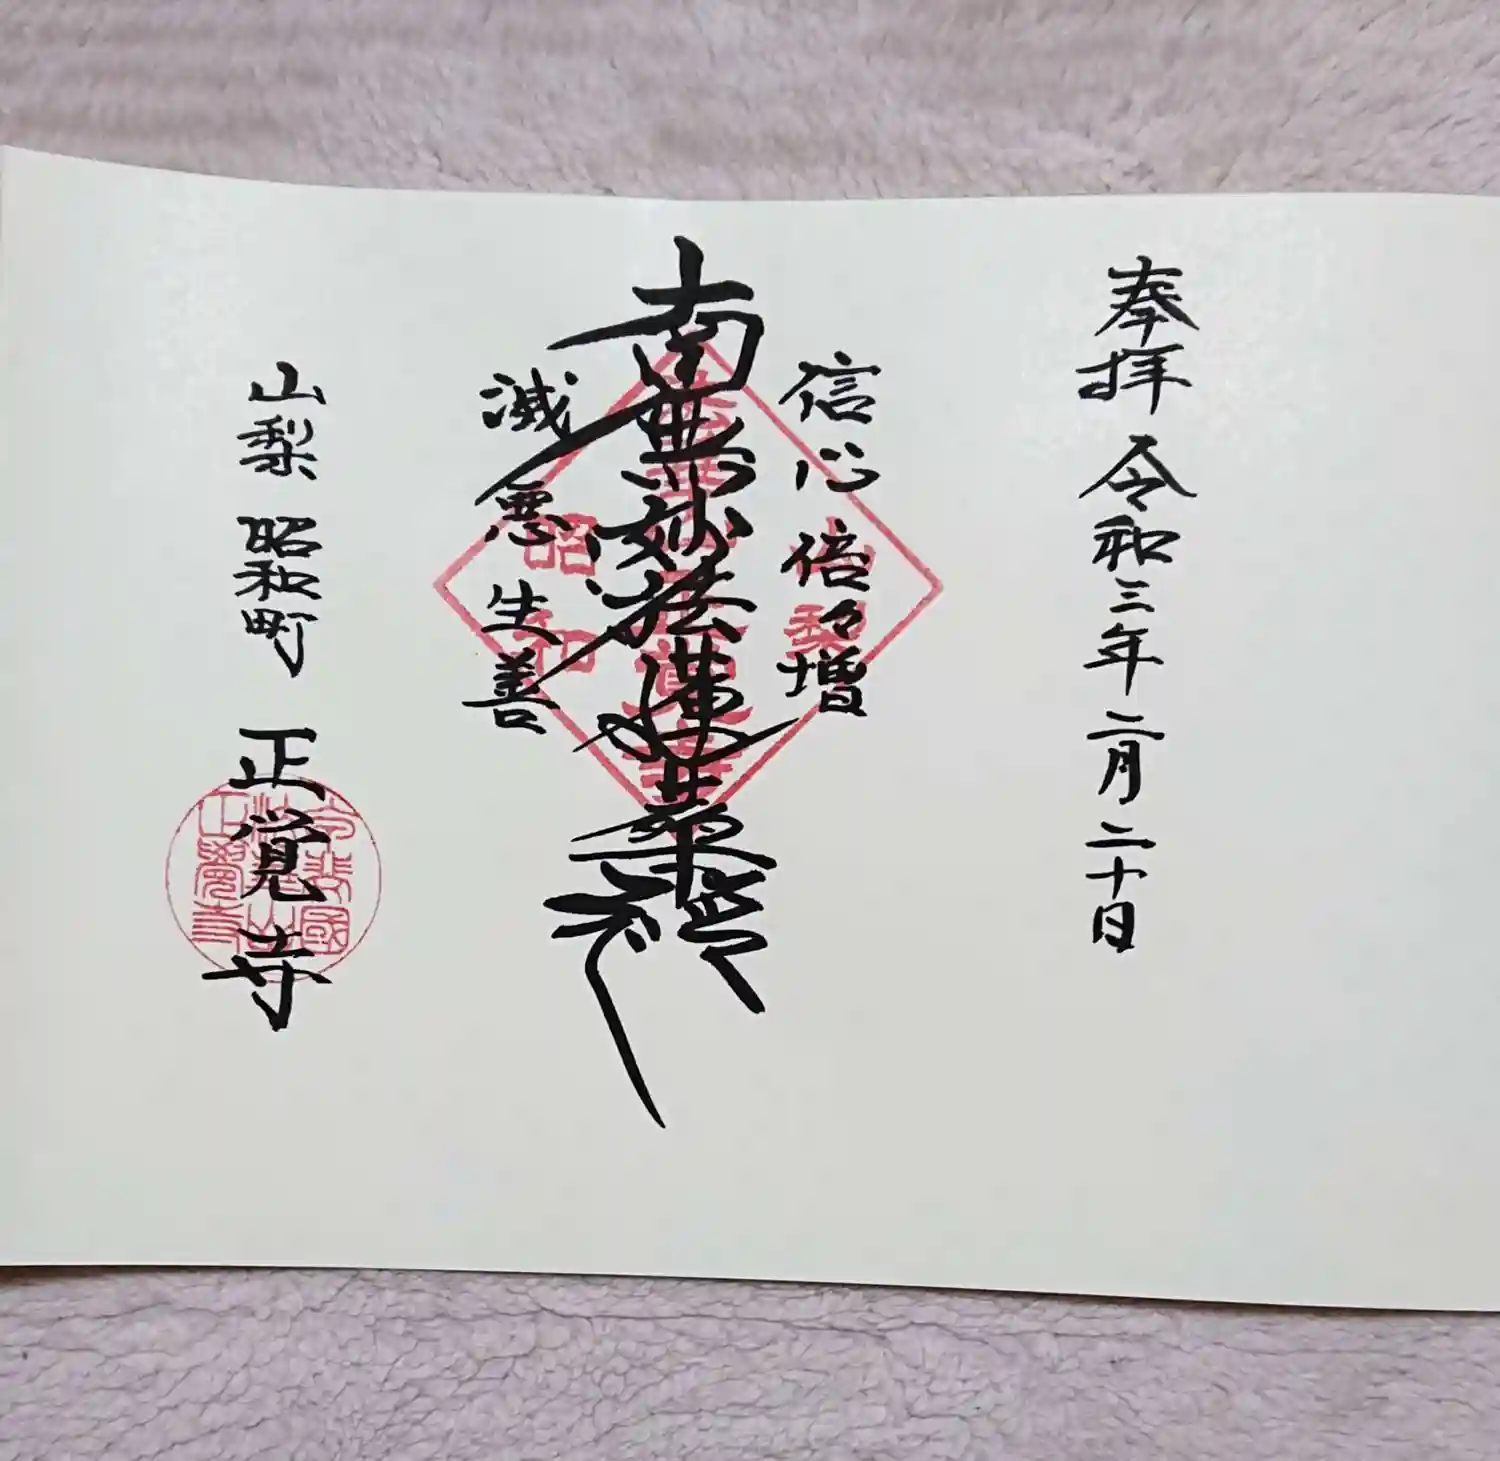 奉拝 令和三年二月二十日
信心倍々増
南無妙法蓮華経
滅悪生善
山梨 昭和町 正覚寺
山梨
昭和